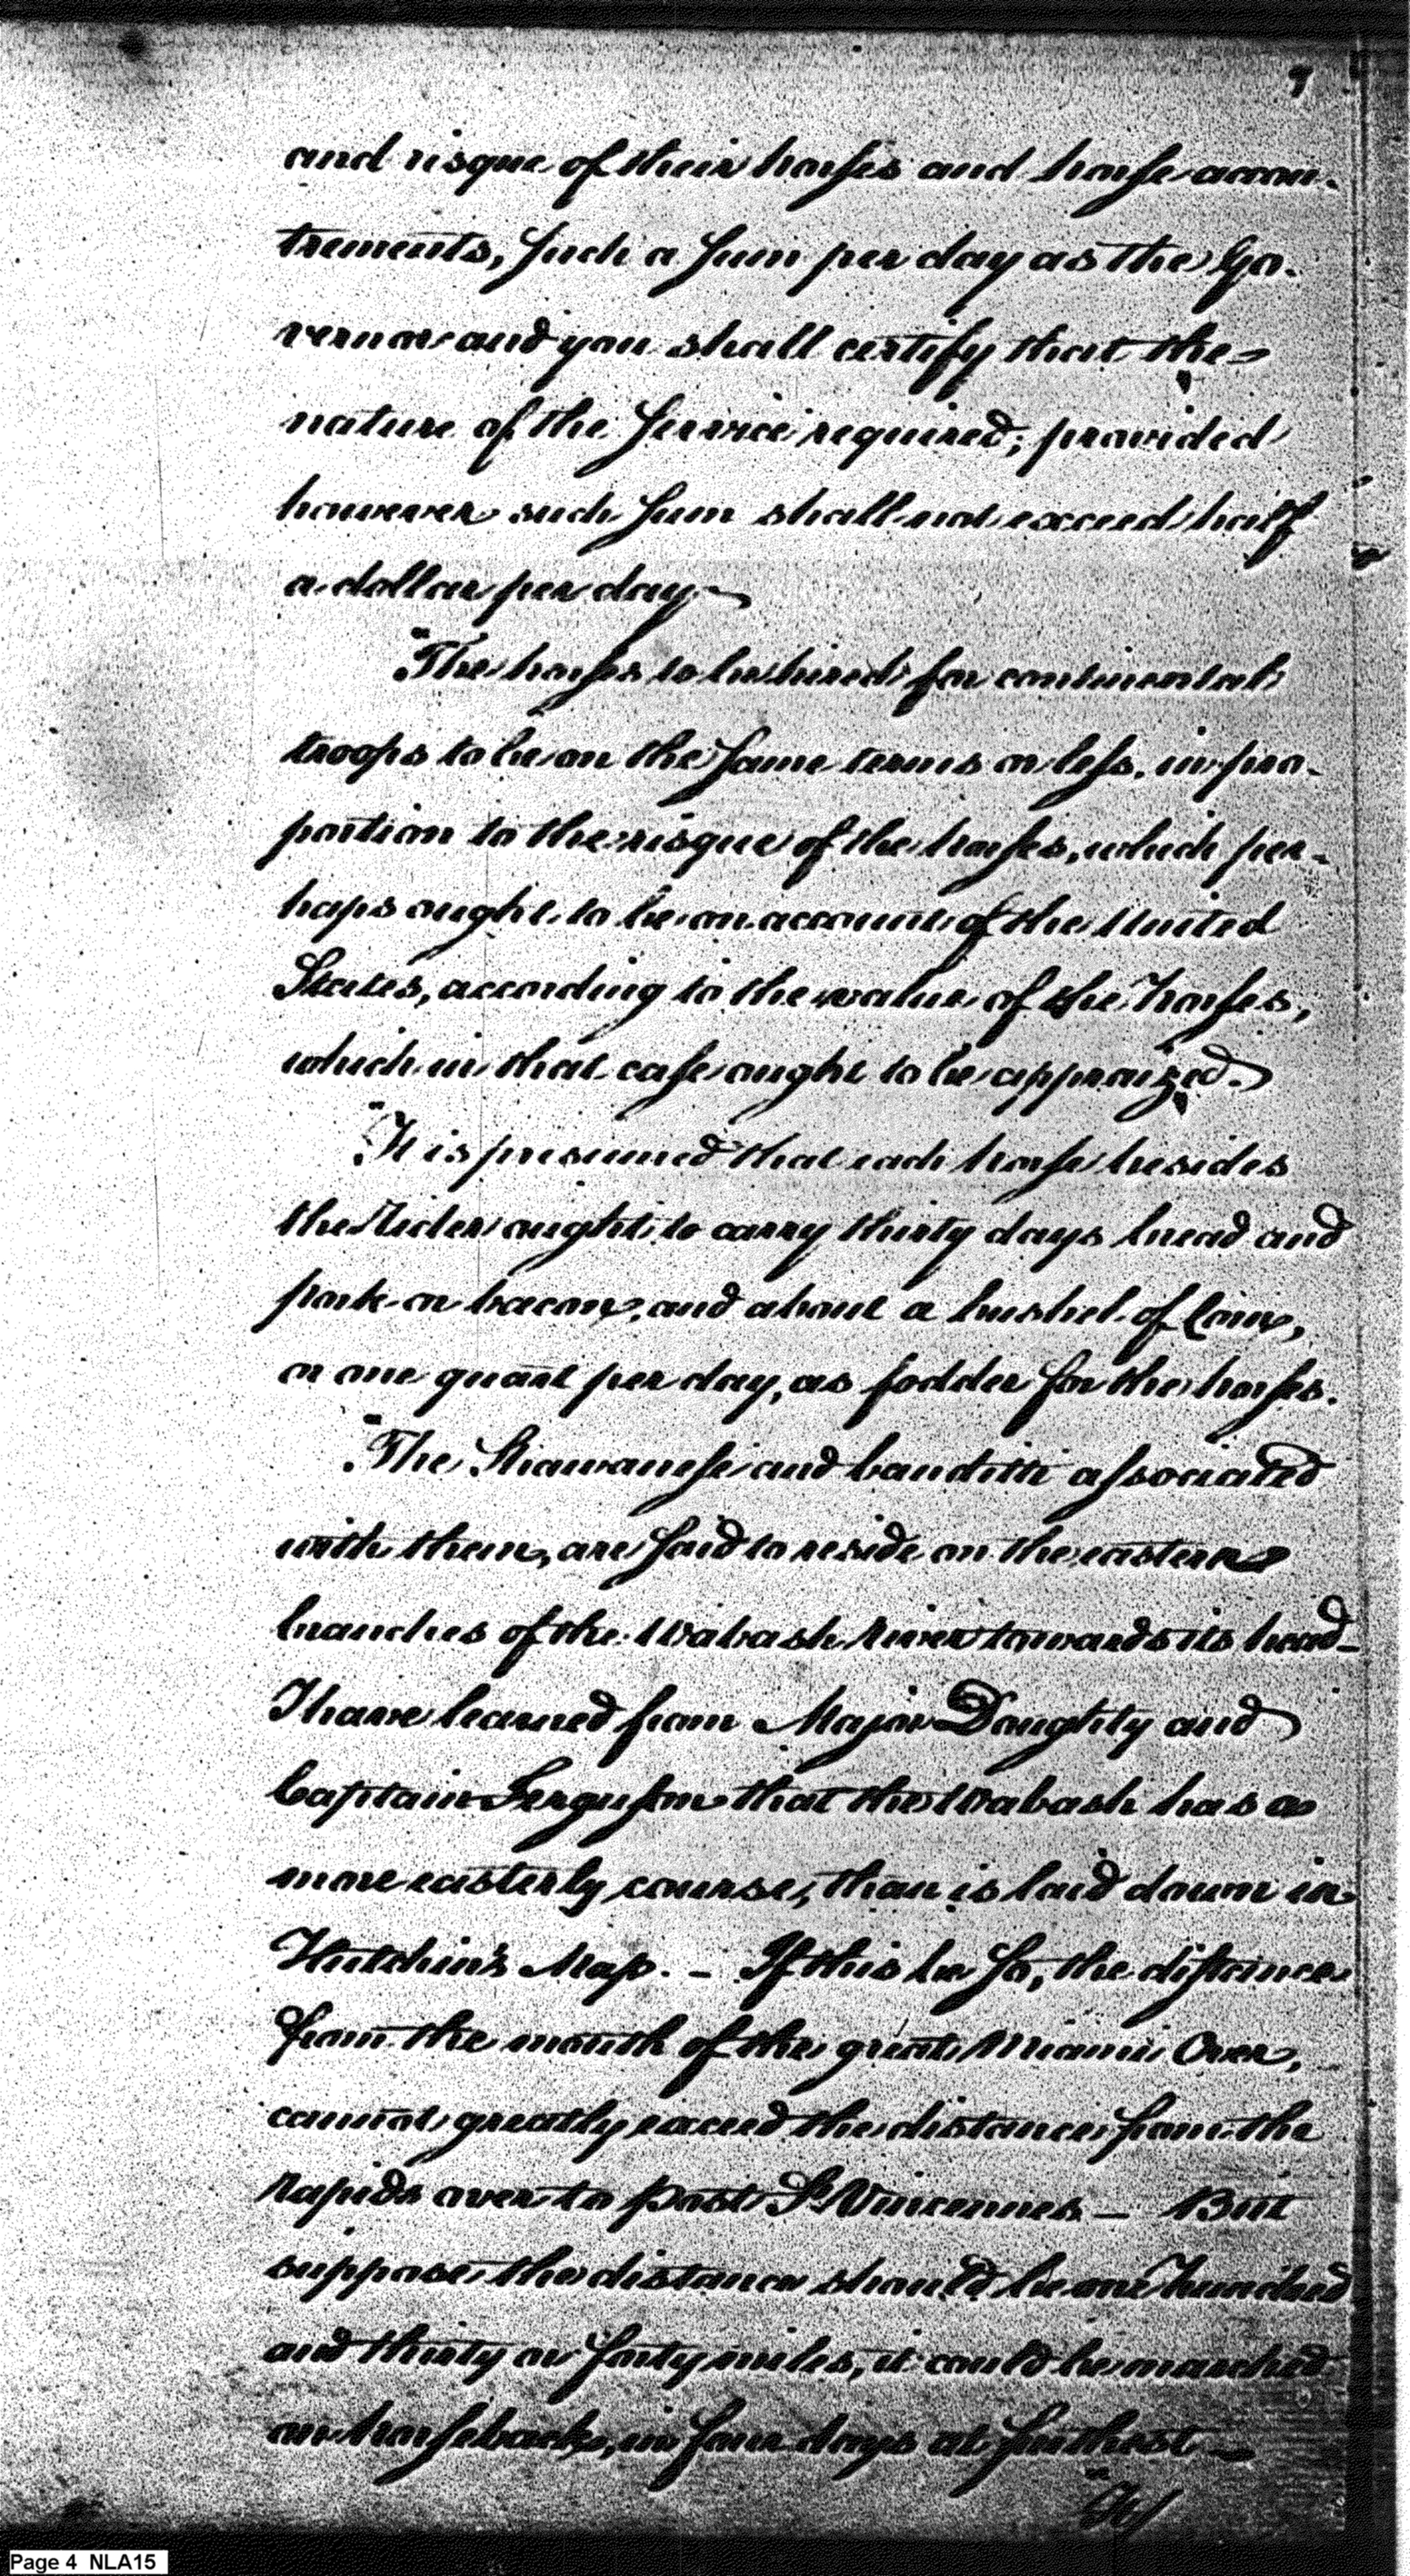 7
and risque of their horses and horse accou-
trements, such a sum per day as the Go-
vernor and you shall certify that the
nature of the service required; provided
however such sum shall not exceed half
a dollar per day —
"The horses to be hired for continental
troops to be on the same terms or less, in pro-
portion to the risque of the horses, which per-
haps ought to be on account of the United
States, according to the value of the Horses,
which in that case ought to be appraized.
"It is presumed that each horse besides
the Rider ought to carry thirty days bread and
pork or bacon, and about a bushel of Corn,
or one quart per day, as fodder for the horses.
"The Shawanese and banditti associated
with them, are said to reside on the eastern
branches of the Wabash River towards its head—
I have learned from Major Doughty and
Captain Ferguson that the Wabash has a
more easterly course, than is laid down in
Hutchin's Map. — If this be so, the distance
from the mouth of the great Miami over,
cannot greatly exceed the distance from the
rapids over to Post St Vincennes — But
suppose the distance should be one hundred
and thirty or forty miles, it could be marched
on horseback, in four days at furthest —
Page 4 NLA15